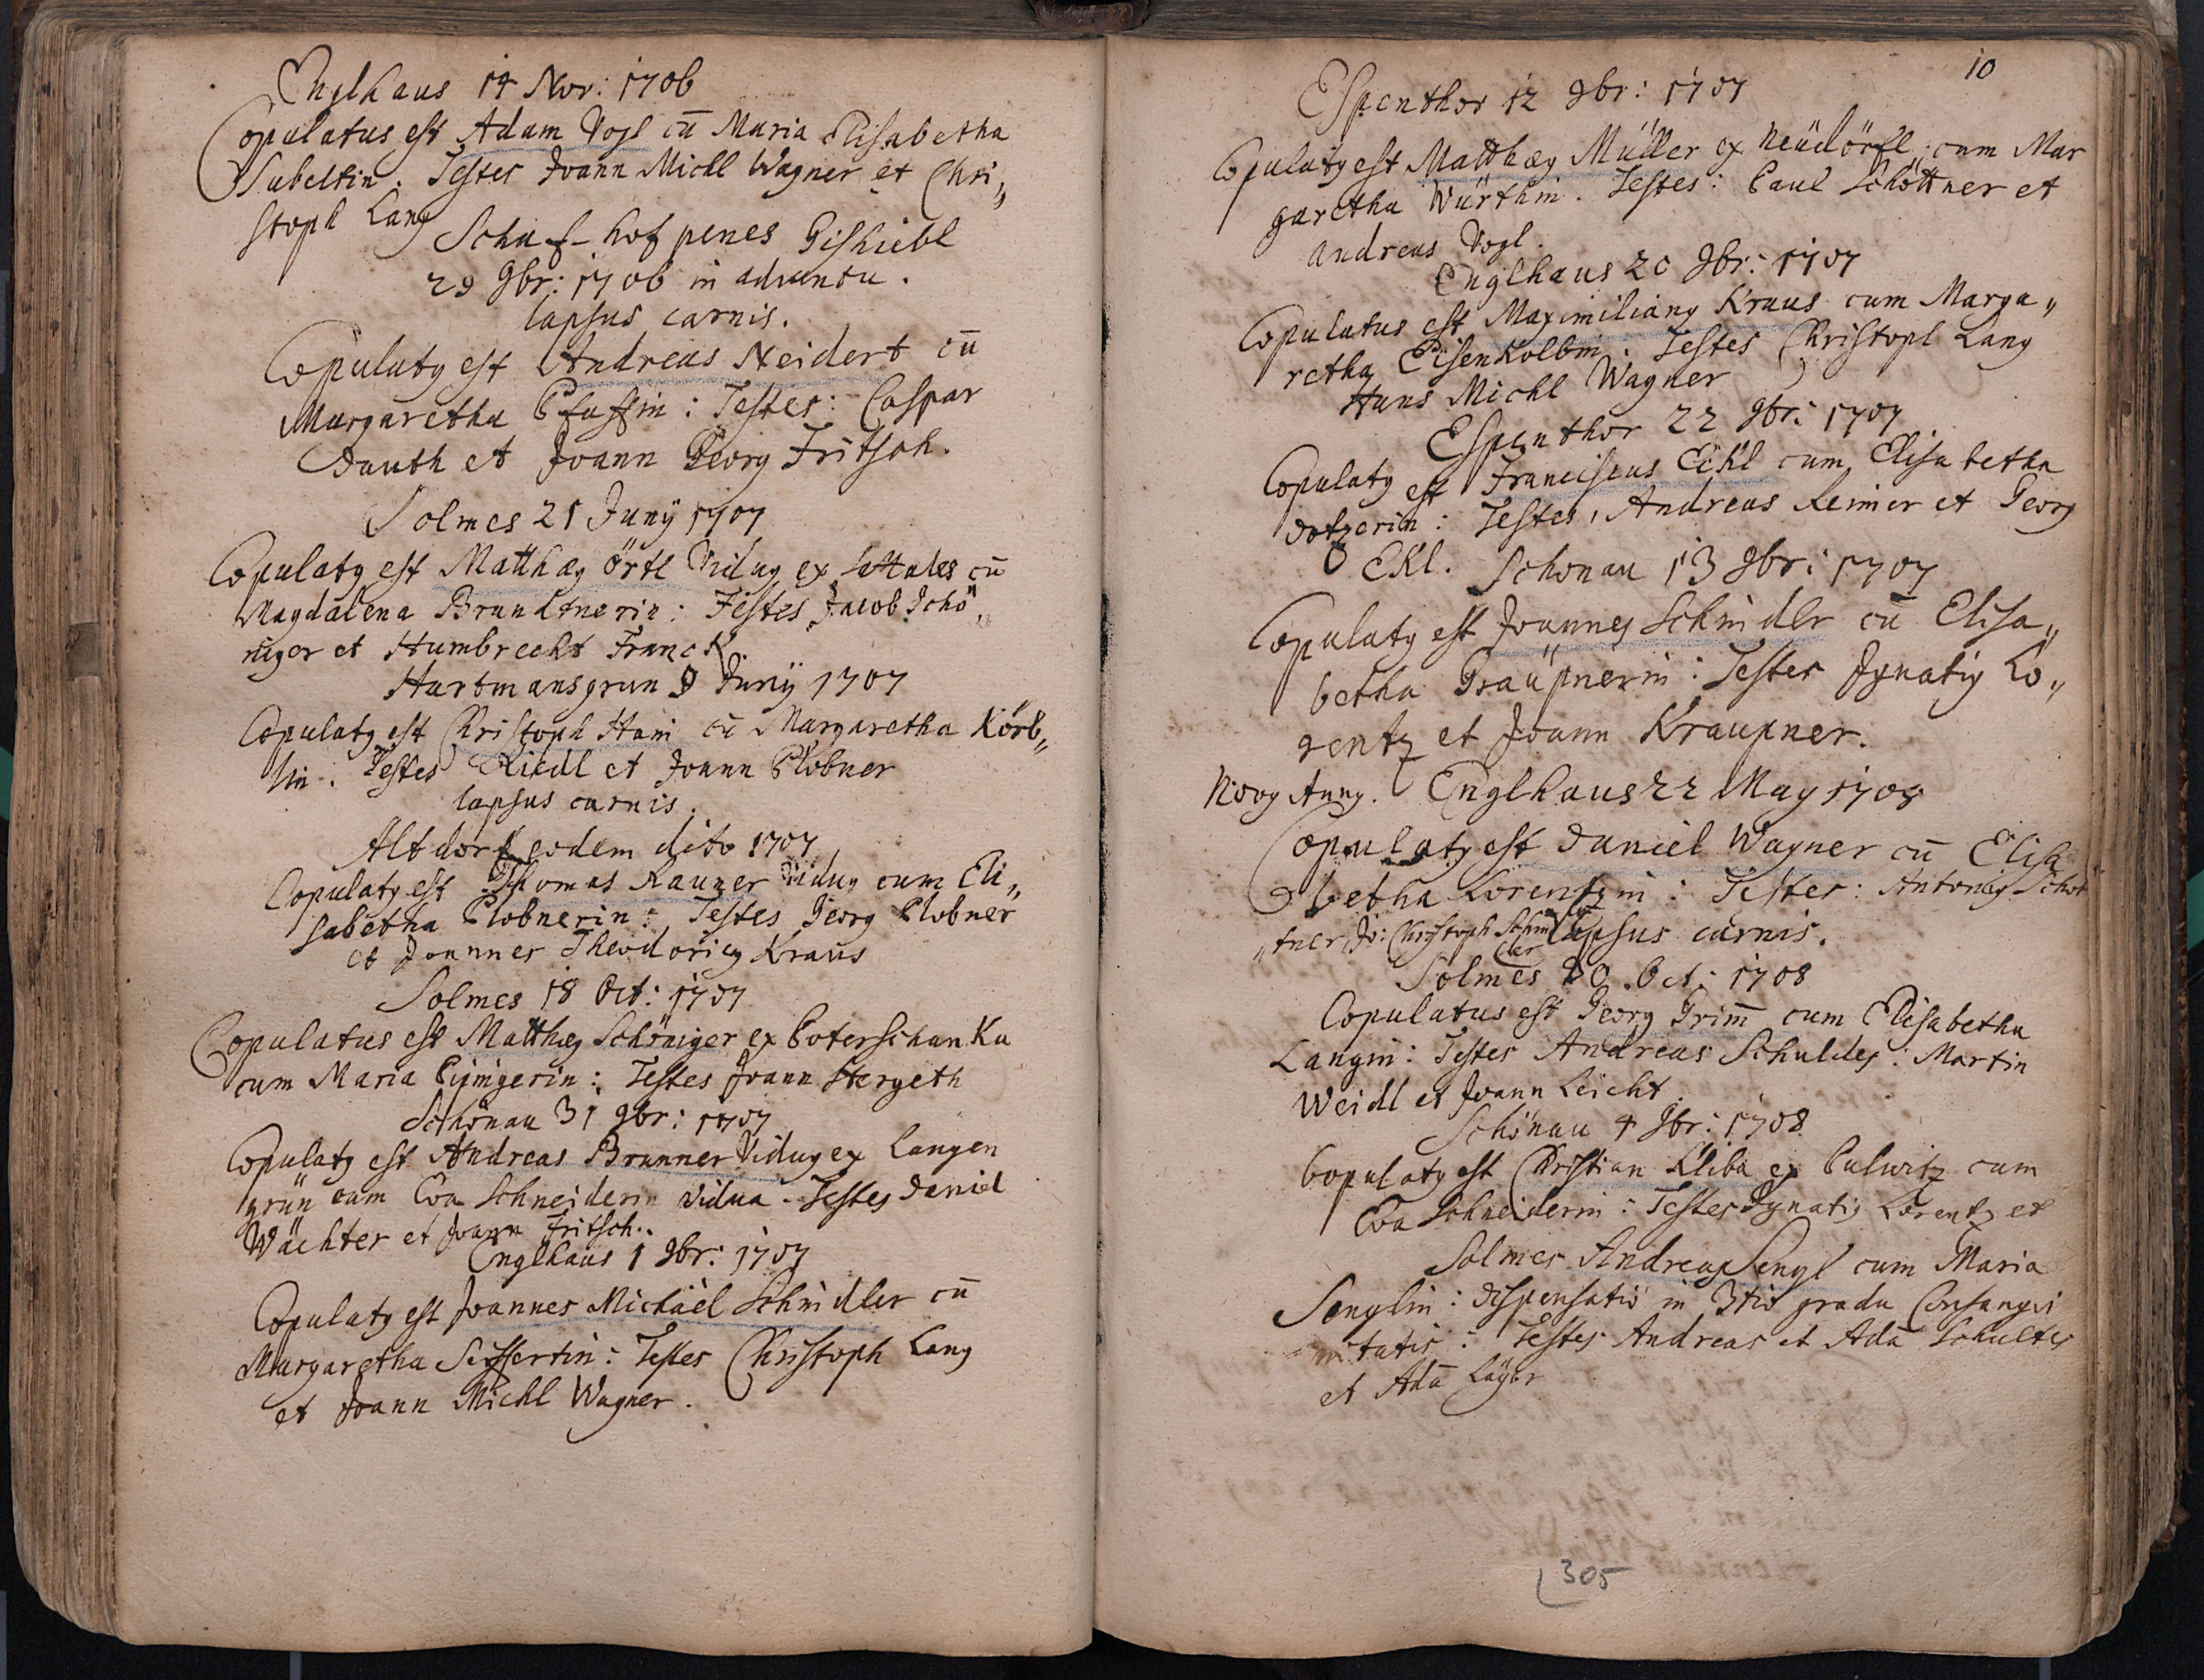 Englhaus 14 Nov: 1706
Copulatus est Adam Vogl cū Maria Elisabetha
Testes Joann Michl Wagner et Chri„
stoph Lang
Schaf-hof penes Gishiebl
29 9br: 1706 in adventu.
lapsus carnis.
Copulatq est Andreas Neidert cū
Margaretha Pfaffin: Testes: Caspar
Dauth et Joann Georg Fritsch.
Solmes 21 Junÿ 1707
Copulatq est Matthæq Örtl Viduq ex cū
Magdalena Brundtnerin: Testes Jacob Schö„
niger et Humbrecht Franck.
Hartmansgrun 9 Junÿ 1707
Copulatq est Christoph Hani cū Margaretha Körb„
lin. Testes Riedl et Joann Plobner
lapsus carnis.
Altdorf eodem dito 1707
Copulatq est Thomas Rauner Viduq cum Eli„
sabetha Plobnerin: Testes Georg Plobner
et Joannes Theodoricq Kraus
Solmes 18 Oct: 1707
Copulatus est Matthæq Schöniger ex Poterschanka
cum Maria Testes Joann Hergeth
Schönau 31 9br: 1707
Copulatq est Andreas Brunner Viduq ex Langen
grün cum Eva Schneiderin vidua. Testes Daniel
Wächter et Joann Fritsch.
Englhaus 1 9br: 1707
Copulatq est Joannes Michaël Schindler cū
Margaretha Seiffertin: Testes Christoph Lang
et Joann Michl Wagner.
10
Espenthor 12 9br: 1707
Copulatq est Matthæq Müller ex Neüdörfl: cum Mar
garetha Würthin. Testes: Paul Schöttner et
Andreas Vogl.
Englhaus 20 9br: 1707
Copulatus est Maximilianq Kraus cum Marga„
retha Eisenkolbin. Testes Christopl Lang
Hans Michl Wagner
Espenthor 22 9br: 1707
Copulatq est Franciscus Eckl cum Elisabetha
Dotzerin: Testes, Andreas Reimer et Georg
Ekl.
Schonau 13 9br: 1707
Copulatq est Joannes Schindlr cū Elisa„
betha Graüpnerin: Testes Ignatiq Lo„
rentz et Joann Kraupner.
Novq Annq. Englhaus 22 May 1708
Copulatq est Daniel Wagner cū Elisa
betha Lorentzin: Testes: Antoniq Schöt
„tner Jo: Christoph Schin
dler lapsus carnis.
Solmes 20 Oct: 1708
Copulatus est Georg Grim̄ cum Elisabetha
Langin: Testes Andreas Schuldes: Martin
Weidl et Joann Leicht.
Schönau 4 9br: 1708
Copulatq est Christian Kliba ex Pulwitz cum
Eva Schneiderin: Testes Ignatiq Lorentz et
Solmes Andreas Sengl cum Maria
Senglin: dispensatio in 3tio gradu Consangvi
nitatis: Testes Andreas et Adā Schultes
et Adā Laÿer
305